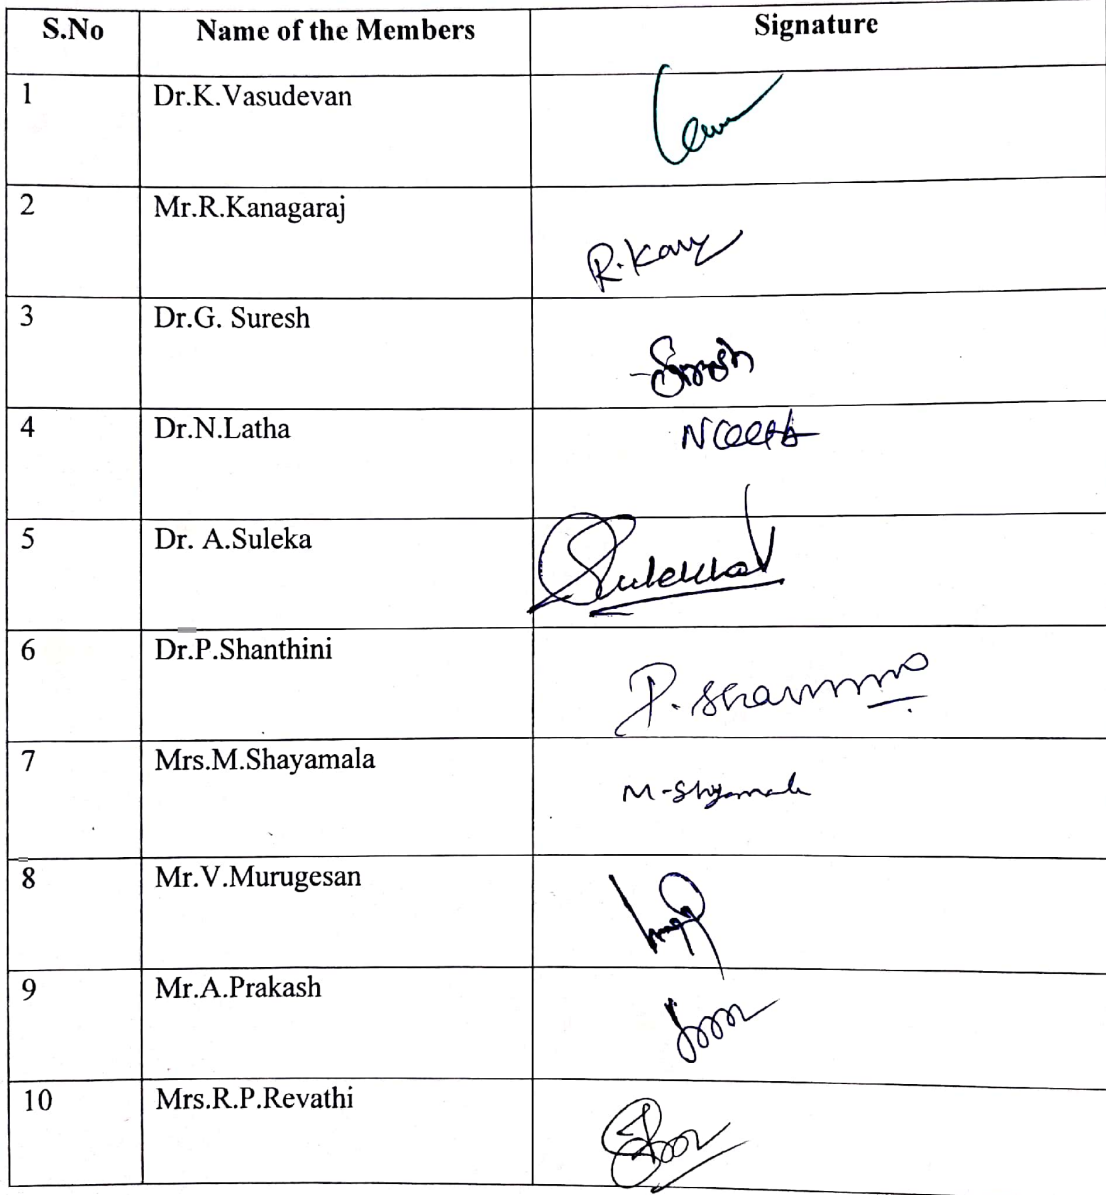 S.No Name of the Members Signature
1 Dr.K.Vasudevan
2 Mr.R.Kanagaraj
R.Kanz
3 Dr.G. Suresh
Suresh
4 Dr.N.Latha
5 Dr. A.Suleka
6 Dr.P.Shanthini
7 Mrs.M.Shayamala
M-Shyamala
8 Mr.V.Murugesan
9 Mr.A.Prakash
10 Mrs.R.P.Revathi